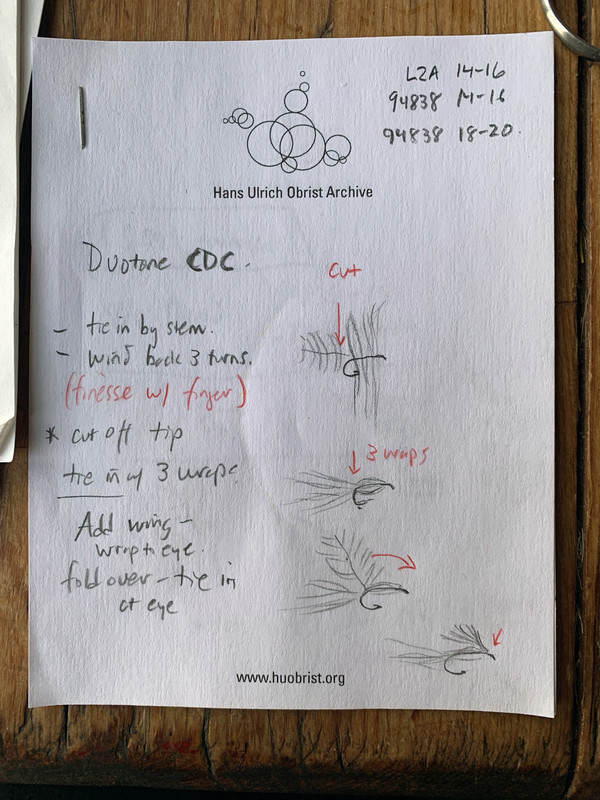 L2A 14-16
94838 14-16
94838 18-20.
Hans Ulrich Obrist Archive
Duotone CDC.
cut
- tie in by stem.
- wind back 3 turns.
(finesse w/ finger)
* cut off tip
3 wraps
tie in w/ 3 wraps.
Add wing -
wrap to eye.
fold over - tie in
at eye
www.huobrist.org